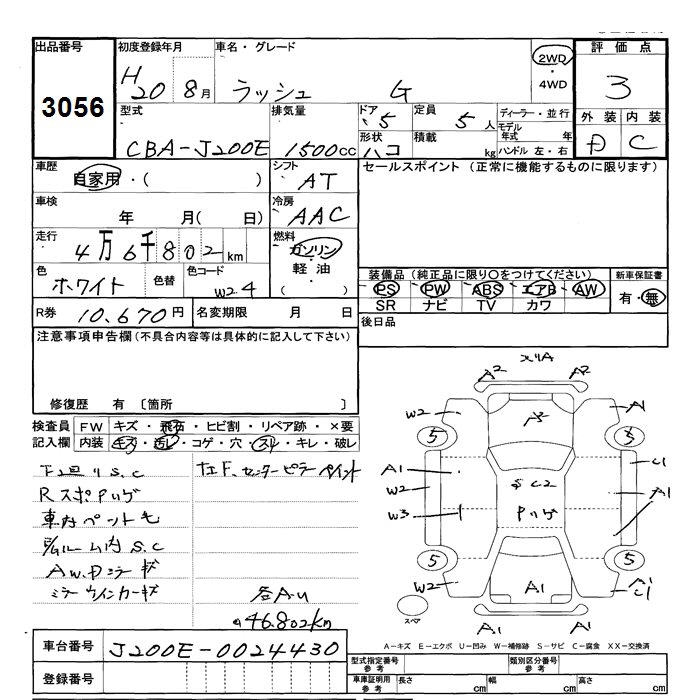 出品番号 初度登録年月 車名・グレード 評価点
3056 H20 8月 ラッシュ G 2WD・4WD 3
型式 排気量 ドア 5 定員 5人 ディーラー・並行 外装 内装
CBA-J200E 1500cc 形状 ハコ 積載 kg モデル年式 年 ハンドル 左・右 D C
車歴 自家用・( ) シフト AT セールスポイント (正常に機能するものに限ります)
車検 年 月( 日) 冷房 AAC
走行 4万6千802km 燃料 ガソリン・軽油・( )
色 ホワイト 色替 色コード W24
装備品 (純正品に限り○をつけてください) 新車保証書
PS PW ABS エアB AW 有・無
SR ナビ TV カワ
R券 10.670円 名変期限 月 日 後日品
注意事項申告欄 (不具合内容等は具体的に記入して下さい)
修復歴 有 [箇所 ]
検査員記入欄 FW キズ・飛石・ヒビ割・リペア跡・×要
内装 キズ・汚レ・コゲ・穴・スレ・キレ・破レ
下廻りS.C
左F、センターピラーペイント
車内ペット毛
E/gルーム内S.C
ミラーウインカーキズ
46.802km
メリA
A2 A2
W2 A1
5 5
A1 C1
W2 A1
W3
5 5
W2
A1
A1 A1
スペア
A-キズ E-エクボ U-凹み W-補修跡 S-サビ C-腐食 XX-交換済
車台番号 J200E-0024430
登録番号
型式指定番号 参考 類別区分番号 参考
車庫証明用 参考 長さ cm 幅 cm 高さ cm